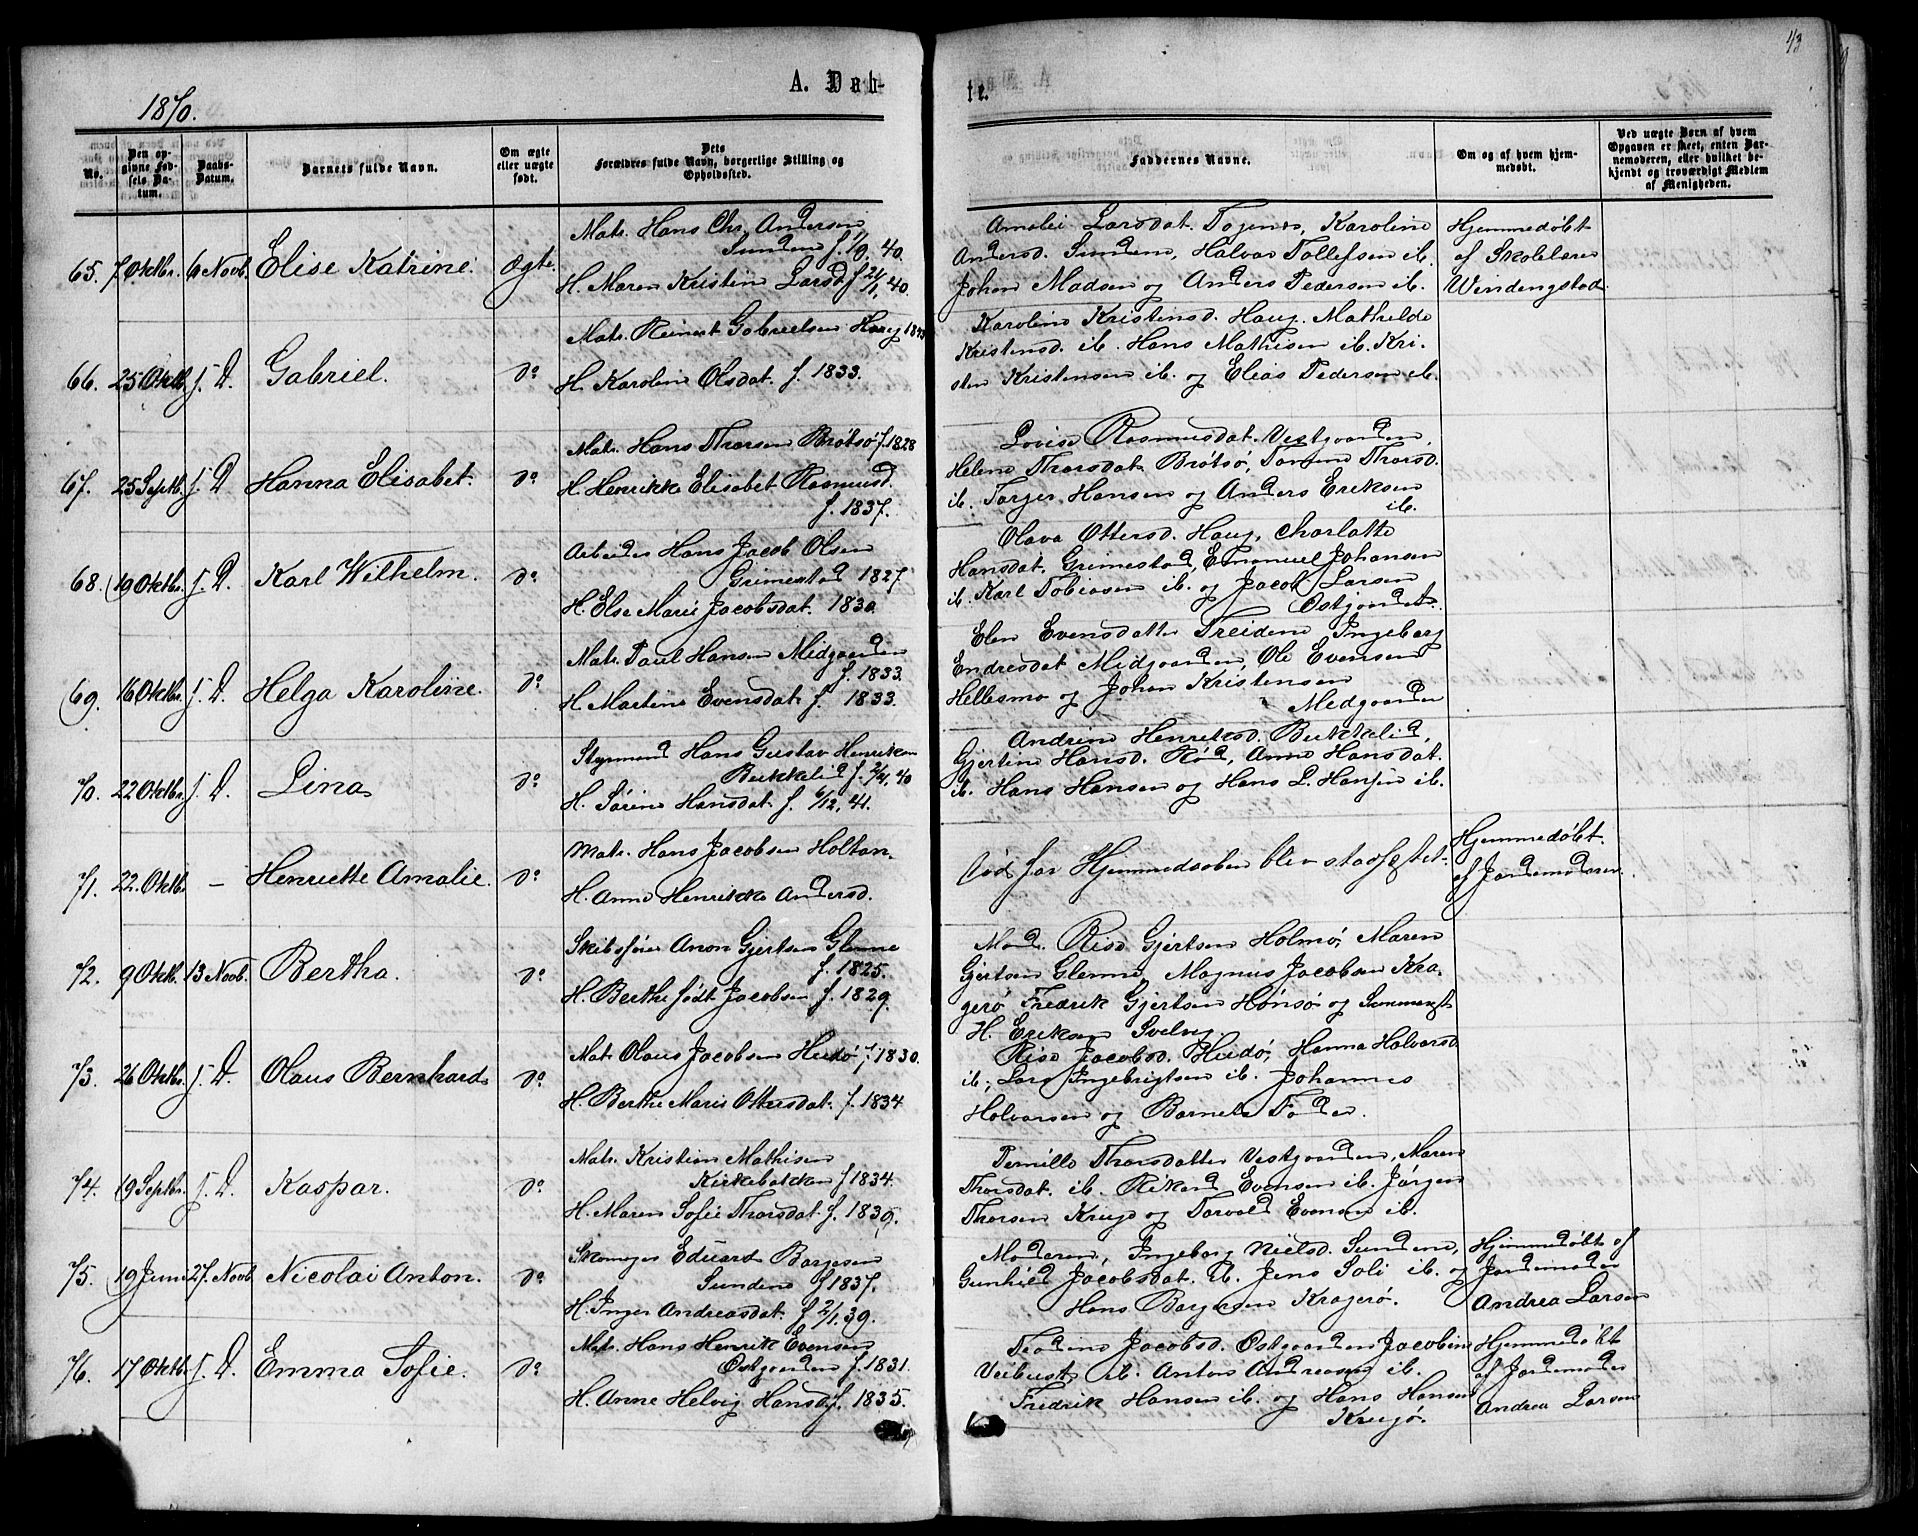 43
1870.
A. Døb-
te.
No.
Den op-
givne Fød-
sels Da-
tum.
Daabs-
Datum.
Barnets fulde Navn.
Om ægte
eller uægte
født.
Dets
Forældres fulde Navn, borgerlige Stilling og
Opholdssted.
Faddernes Navne.
Om og af hvem hjem-
medøbt.
Ved uægte Børn af hvem
Opgaven er skeet, enten Bar-
nemoderen, eller hvilket be-
kjendt og troværdigt Medlem
af Menigheden.
65. 7 Oktbr. 6 Novb. Elise Katrine. Ægte.
Matr. Hans Chr. Andersen
Sundene f. 1/9, 40.
H. Maren Kristin Larsd. f. 24/1, 40.
Amalei Larsdat. Karoline
Andersd. Sundene, Halvor Tollefsen ib.
Johan Madsen og Anders Pedersen ib.
Hjemmedøbt
af Skolelærer
Wendengstad
66. 25 Oktb. s. D. Gabriel. Do
Matr. Reinert Gabrielsen Haug 1843
H. Karoline Olsdat. f. 1833.
Karoline Kristensd. Haug, Mathilde
Kristensd. ib. Hans Mathisen ib. Kri-
sten Kristensen ib. og Elias Pedersen ib.
67. 25 Septb. s. D Hanna Elisabet. Do
Matr. Hans Thorsen Brøtsø f. 1828
H. Henrikke Elisabet Rasmusd.
f. 1837.
Lovise Rasmusdat. Vestgaarden,
Helene Thorsdat. Brøtsø, Tomine Thorsd.
ib. Torger Hansen og Anders Eriksen
ib.
68. 19 Oktbr. s. D. Karl Wilhelm. Do
Arbeider Hans Jacob Olsen
Grimestad 1827.
H. Else Marie Jacobsdat. 1830.
Olava Ottersd. Haug, Charlotte
Hansdat. Grimestad, Emanuel Johansen
ib. Karl Tobiasen ib. og Jacob Larsen
Østgaarden.
69. 16 Oktbr. s. D. Helga Karoline. Do
Matr. Paul Hansen Midgaarden
f. 1833.
H. Martine Evensdat. f. 1833.
Elen Evensdatter Treidene Ingeborg
Endresdat. Midgaarden, Ole Evensen
Hellesmo og Johan Kristensen
Midgaarden
70. 22 Oktbr. s. D. Lina Do
Styrmand Hans Gustav Henriksen
Bukkelid f. 2/4, 40
H. Sørine Hansdat. f. 6/12, 41.
Andrine Henriksd. Bukkelid,
Gjertine Hansd. Rød, Anne Hansdat.
ib. Hans Hansen og Hans L. Hansen ib.
71. 22. Oktb. – Henriette Amalie. Do
Matr. Hans Jacobsen Holtan.
H. Anne Henrikke Andersd.
Død før Hjemmedaaben blev stadfæstet.
Hjemmedøbt
af Jordemoderen.
72. 9 Oktb. 13 Novb. Bertha. Do
Skibsfører Anon Gjertsen Glenne
f. 1825.
H. Berthe født Jacobsen f. 1829.
Mad. Risø Gjertsen Holmø, Maren
Gjertsen Glenne, Magnus Jacobsen Kra-
gerø Fredrik Gjertsen Hønsø og
H. Eriksen Svelvig.
73. 26 Oktbr. s. D. Olaus Bernhard. Do
Matr. Olaus Jacobsen Hudø f. 1830.
H. Berthe Marie Ottersdat. f. 1834
Risø Jacobsd. Hudø, Hanna Halvorsd
ib, Lars Ingebrigtsen ib. Johannes
Halvorsen og Barnets Fader.
74. 19 Septbr. s. D. Kaspar. Do
Matr. Kristian Mathisen
Kirkebakken f 1834.
H. Maren Sofie Thorsdat. f. 1839.
Pernille Thorsdatter Vestgaarden, Maren
Thorsdat. ib. Rikard Evensen ib. Jørgen
Thorsen Krugø og Torvald Evensen ib.
75. 19 Juni 27. Novb Nicolai Anton. Do
Skomager Eduard Borgesen
Sundene f 1837.
H. Inger Andreasdat. f 2/1, 39.
Moderen, Ingeborg Nielsd. Sundene,
Gunhild Jacobsdat. ib. Jens Soli ib. og
Hans Borgersen Kragerø.
Hjemmedøbt af
Jordemoder
Andrea Larsen
76. 17 Oktbr. s. D. Emma Sofie. Do
Matr. Hans Henrik Evensen
Østgaarden f. 1831.
H. Anne Helvig Hansd. f. 1835.
Jacobsd. Østgaarden Jacobine
Veibust ib. Anton Andreasen ib.
Fredrik Hansen ib. og Hans Hansen
Krugø.
Hjemmedøbt
af Jordemoder
Andrea Larsen